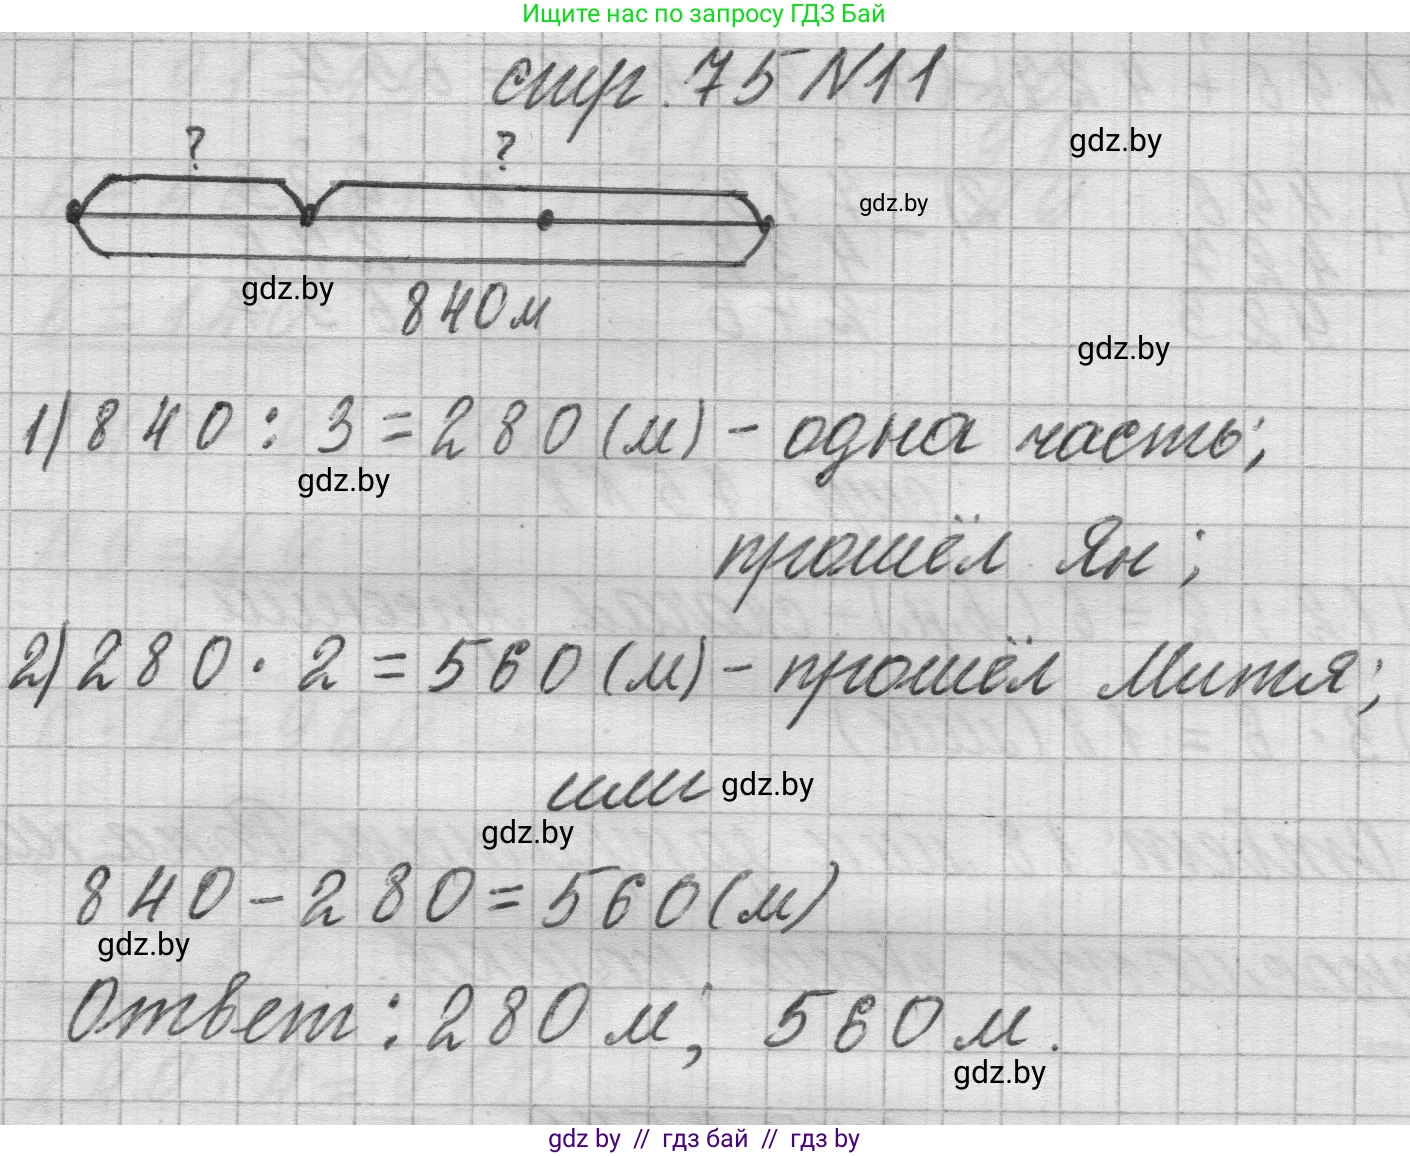 Ищите нас по запросу ГДЗ Бай
стр. 75 №11
gdz.by
? ?
gdz.by
gdz.by
840 м
gdz.by
1) 840 : 3 = 280 (м) - одна часть;
gdz.by
прошёл Ян;
2) 280 · 2 = 560 (м) - прошёл Митя;
или gdz.by
gdz.by
840 - 280 = 560 (м)
gdz.by
Ответ: 280 м; 560 м.
gdz.by
gdz by // гдз бай // гдз by